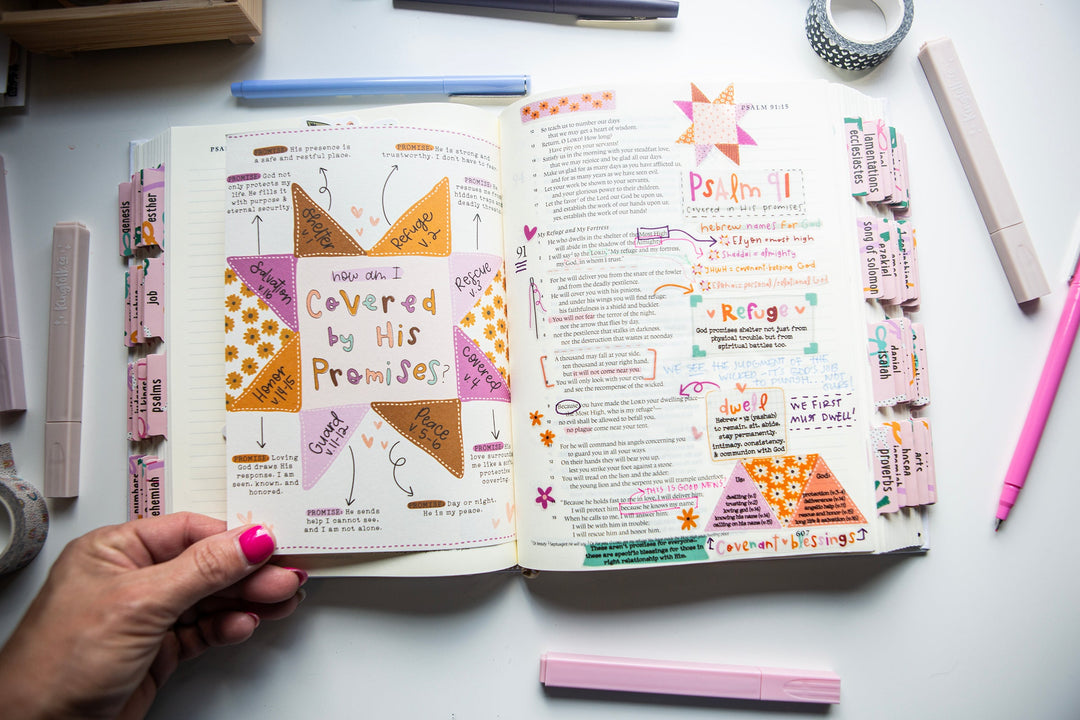 PROMISE: His presence is
a safe and restful place.
PROMISE: He is strong and
trustworthy. I don't have to fear.
PROMISE: God not
only protects my
life. He fills it
with purpose &
eternal security.
PROMISE: He
rescues me from
hidden traps and
deadly threats.
Shelter
v.1
Refuge
v.2
Salvation
v.16
Rescue
v.3
how am I
Covered
by His
Promises?
Honor
v.14-15
Covered
v.4
Guard
v.11-12
Peace
v.5-6
PROMISE: Loving
God draws His
response. I am
seen, known, and
honored.
PROMISE: He sends
help I cannot see,
and I am not alone.
PROMISE: Day or night,
He is my peace.
PROMISE: God's
love surrounds
me like a soft
protective
covering.
PSALM 91:15
12 So teach us to number our days
that we may get a heart of wisdom.
13 Return, O LORD! How long?
Have pity on your servants!
14 Satisfy us in the morning with your steadfast love,
that we may rejoice and be glad all our days.
15 Make us glad for as many days as you have afflicted us,
and for as many years as we have seen evil.
16 Let your work be shown to your servants,
and your glorious power to their children.
17 Let the favor of the Lord our God be upon us,
and establish the work of our hands upon us;
yes, establish the work of our hands!
My Refuge and My Fortress
91
He who dwells in the shelter of the Most High
will abide in the shadow of the Almighty.
2 I will say to the LORD, "My refuge and my fortress,
my God, in whom I trust."
3 For he will deliver you from the snare of the fowler
and from the deadly pestilence.
4 He will cover you with his pinions,
and under his wings you will find refuge;
his faithfulness is a shield and buckler.
5 You will not fear the terror of the night,
nor the arrow that flies by day,
6 nor the pestilence that stalks in darkness,
nor the destruction that wastes at noonday.
7 A thousand may fall at your side,
ten thousand at your right hand,
but it will not come near you.
8 You will only look with your eyes
and see the recompense of the wicked.
9 Because you have made the LORD your dwelling place—
the Most High, who is my refuge—
10 no evil shall be allowed to befall you,
no plague come near your tent.
11 For he will command his angels concerning you
to guard you in all your ways.
12 On their hands they will bear you up,
lest you strike your foot against a stone.
13 You will tread on the lion and the adder;
the young lion and the serpent you will trample underfoot.
THIS IS GOOD NEWS!
14 "Because he holds fast to me in love, I will deliver him;
I will protect him, because he knows my name.
15 When he calls to me, I will answer him;
I will be with him in trouble;
I will rescue him and honor him.
Psalm 91
Covered in His promises
hebrew names for God
Elyon = most high
Shaddai = almighty
YHWH = covenant-keeping God
Elohai = personal/relational God
Refuge
God promises shelter not just from
physical trouble, but from
spiritual battles too.
WE SEE THE JUDGMENT OF THE
WICKED - IT'S GOD'S JOB
TO PUNISH... NOT
OURS!
dwell
Hebrew = (yashab)
to remain, sit, abide,
stay permanently.
intimacy, consistency,
& communion with God
WE FIRST
MUST DWELL!
Us:
dwelling (v.1)
trusting (v.2)
loving god (v.14)
knowing his name (v.14)
calling on his name (v.15)
God:
protection (v.3-4)
deliverance (v.14)
angelic help (v.11)
rescue and honor (v.15)
long life & salvation (v.16)
607
Covenant blessings
These aren't promises for everyone-
these are specific blessings for those in
right relationship with Him.
genesis
esther
job
psalms
nehemiah
ecclesiastes
lamentations
song of solomon
ezekiel
isaiah
daniel
proverbs
hosea
acts